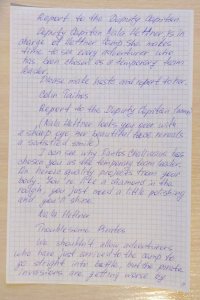 Report to the Deputy Capitan
Deputy Capitan Nala Hettner, is in
charge of Hettner Camp. She makes
time to see every adventurer who
has been chosed as a temporary team
leader.
Please make haste and report to her.
Colin Tuchos
Report to the Deputy Capitan
(Nala Hettner looks you over with
a sharp eye her beautiful face reveals
a satisfied smile)
I can see why Faetos Chalivarus has
chosen you as the temporary team leader
heroic quality projects from your
body. You're like a diamond in the
rough, you just need a little polishing
and you'll shine.
Nala Hettner
Troublesome Pirates
We shouldn't allow adventurers
who have just arrived to the camp to
go straight into battle, but the pirate
invasions are getting worse by